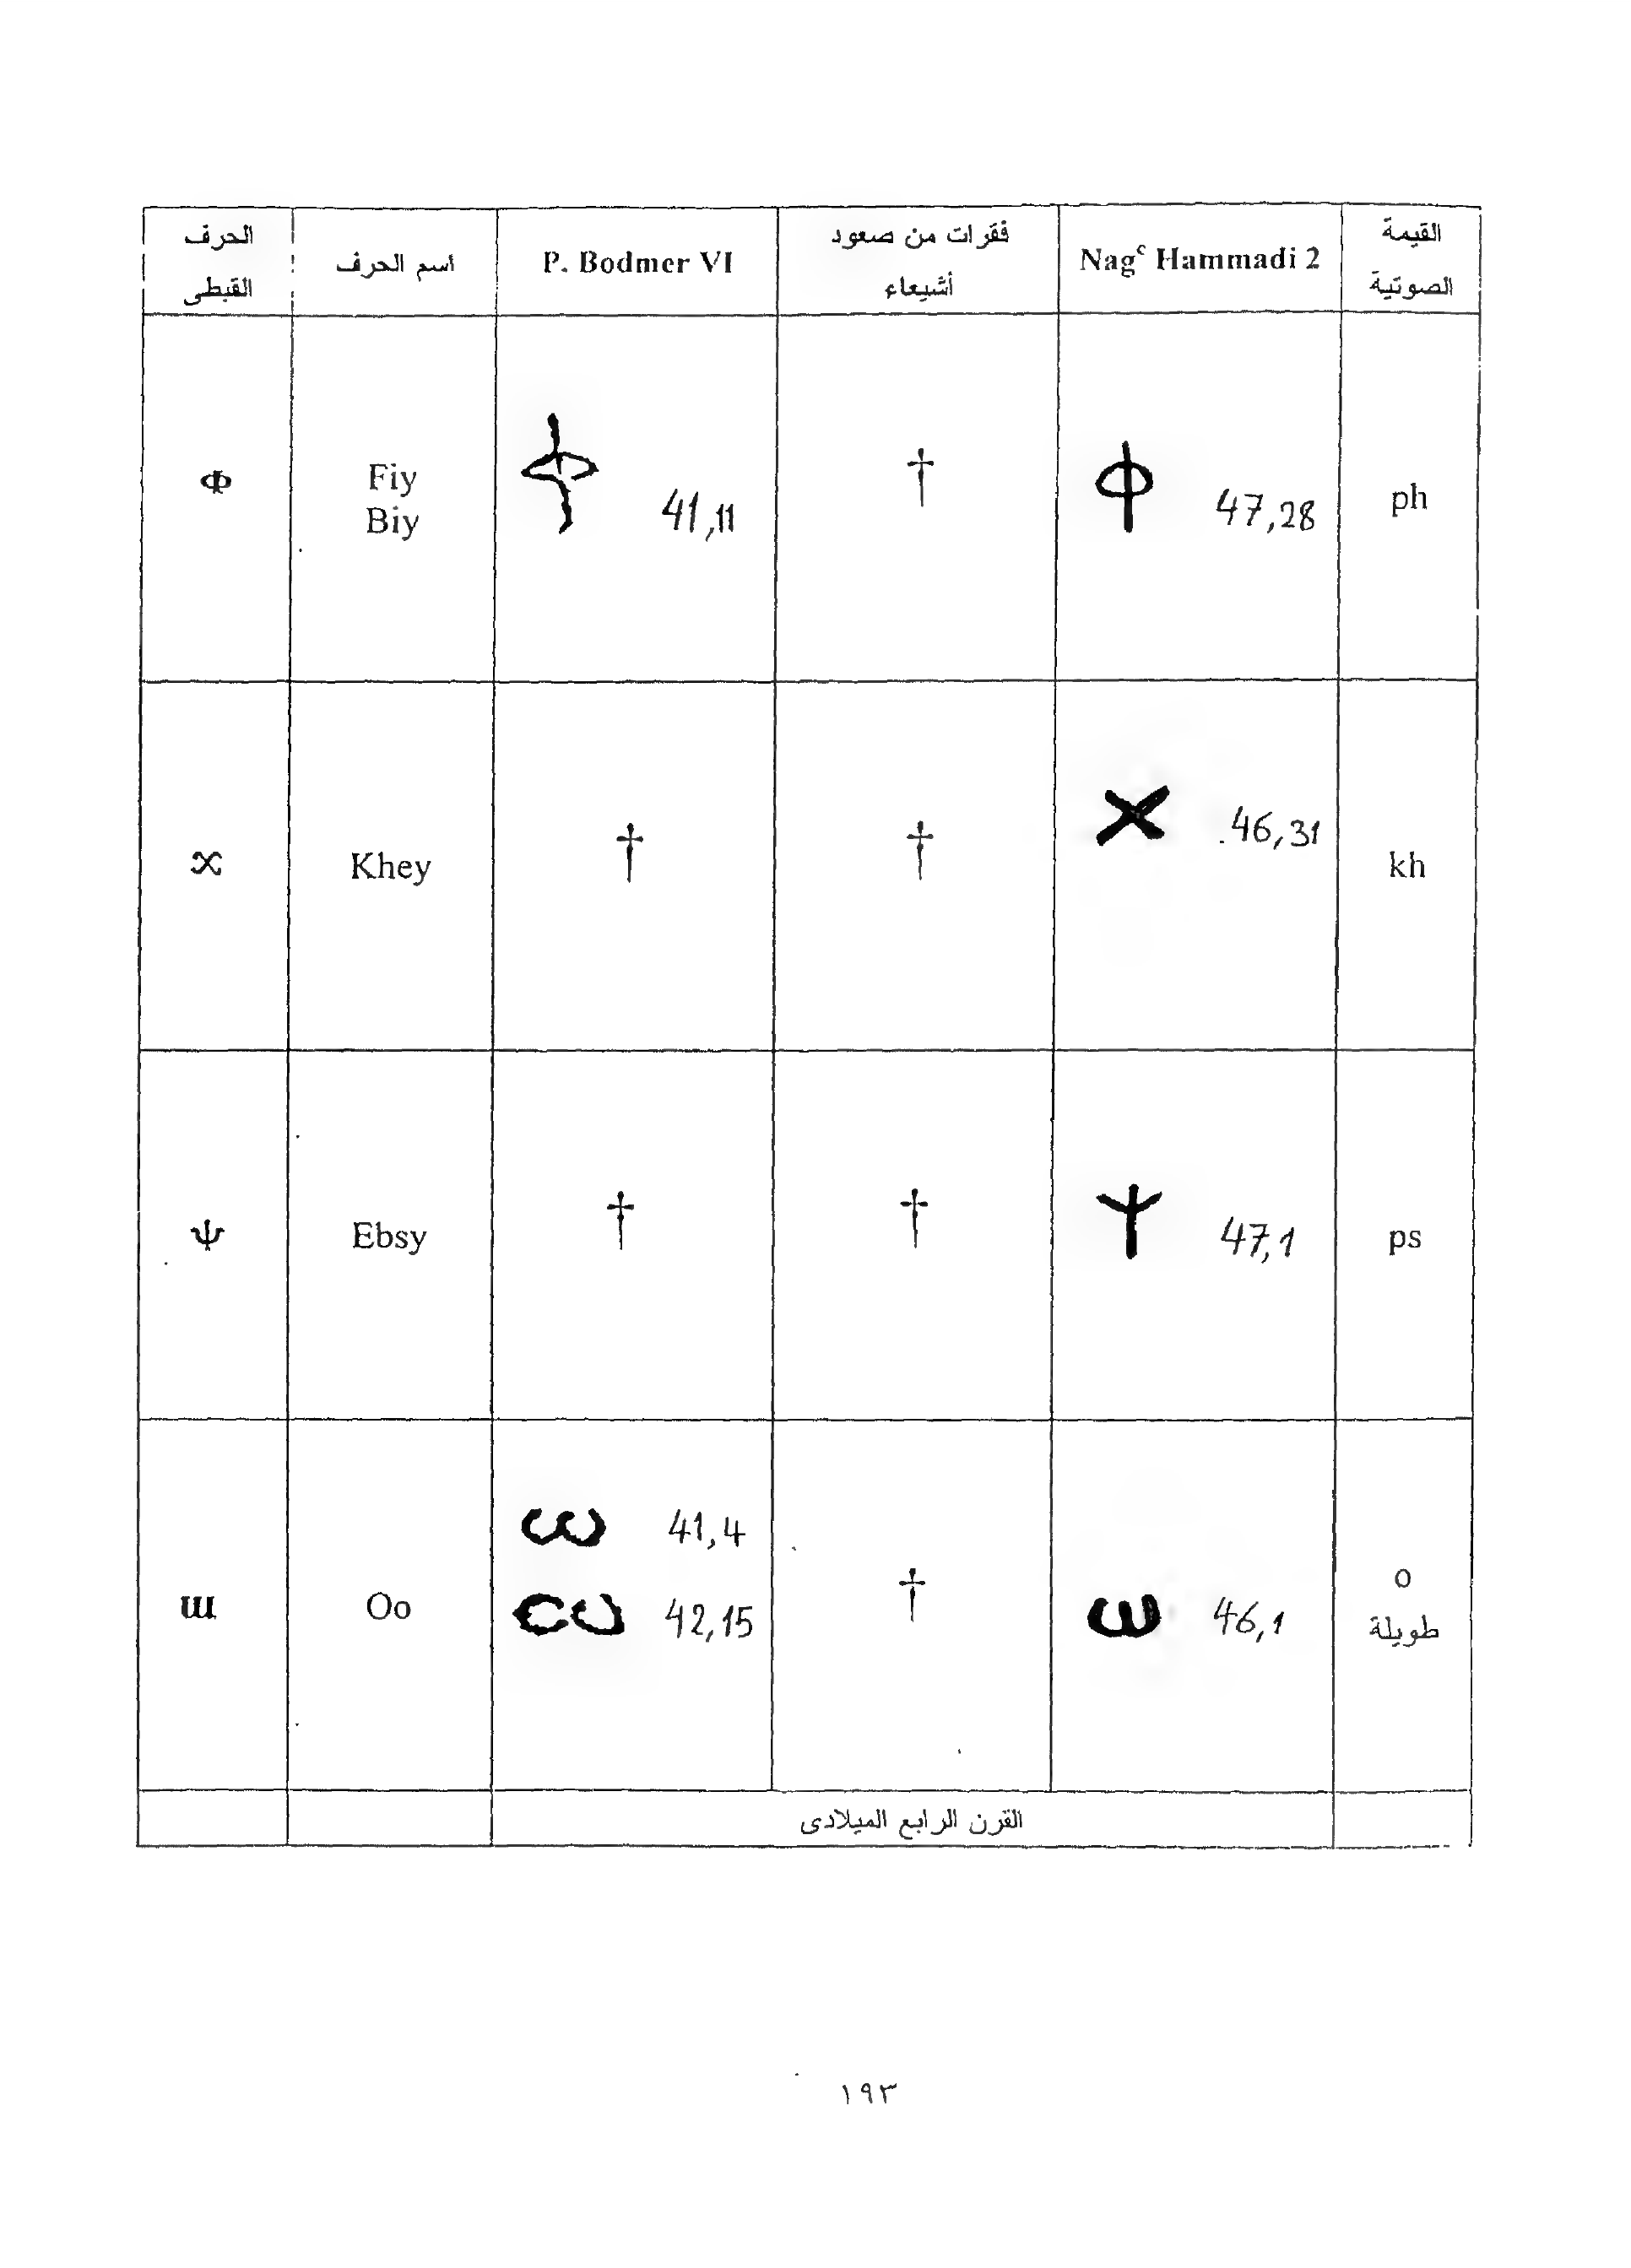 الحرف القبطى | اسم الحرف | P. Bodmer VI | فقرات من صعود أشيعاء | Nagᶜ Hammadi 2 | القيمة الصوتية
ⲫ | Fiy Biy | ⲫ 41,11 | † | ⲫ 47,28 | ph
ⲭ | Khey | † | † | ⲭ 46,31 | kh
ⲯ | Ebsy | † | † | ⲯ 47,1 | ps
ⲱ | Oo | ⲱ 41,4 ⲱ 42,15 | † | ⲱ 46,1 | o طويلة
القرن الرابع الميلادى
١٩٣